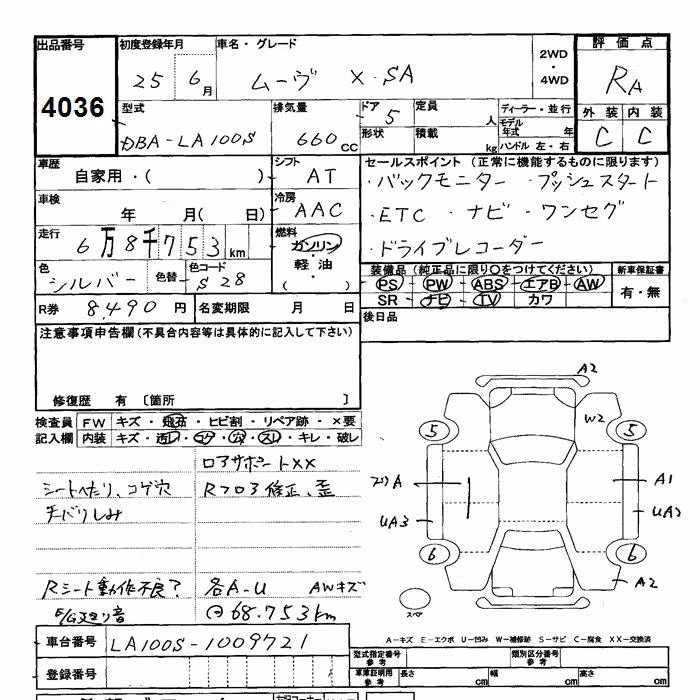 出品番号 初度登録年月 車名・グレード 2WD・4WD 評価点
4036 25 6月 ムーヴ X・SA RA
型式 排気量 ドア 定員 ディーラー・並行 外装 内装
DBA-LA100S 660cc 5 人 モデル年式 年 C C
形状 積載 kg ハンドル 左・右
車歴 シフト セールスポイント (正常に機能するものに限ります)
自家用・( ) AT ・バックモニター ・プッシュスタート
車検 冷房
年 月( 日) AAC ・ETC ・ナビ・ワンセグ
走行 燃料
6万8千753km ガソリン・軽油・( ) ・ドライブレコーダー
色 色替 色コード 装備品 (純正品に限り○をつけてください) 新車保証書
シルバー S28 PS PW ABS エアB AW 有・無
R券 8,490円 名変期限 月 日 SR ナビ TV カワ
注意事項申告欄(不具合内容等は具体的に記入して下さい) 後日品
修復歴 有〔箇所 〕
検査員 FW キズ・飛石・ヒビ割・リペア跡・×要
記入欄 内装 キズ・汚レ・コゲ・穴・スレ・キレ・破レ
コアサポートXX
シートへたり、コゲ穴 Rフロア修正、歪
手バリしみ
Rシート動作不良? 各A-U AWキズ
68.753km
A2
W2
5 5
A A1
UA3 UA2
6 6
A2
スペア
A-キズ E-エクボ U-凹み W-補修跡 S-サビ C-腐食 XX-交換済
車台番号 LA100S-1009721
登録番号
型式指定番号 参考 類別区分番号 参考
車庫証明用 参考 長さ cm 幅 cm 高さ cm